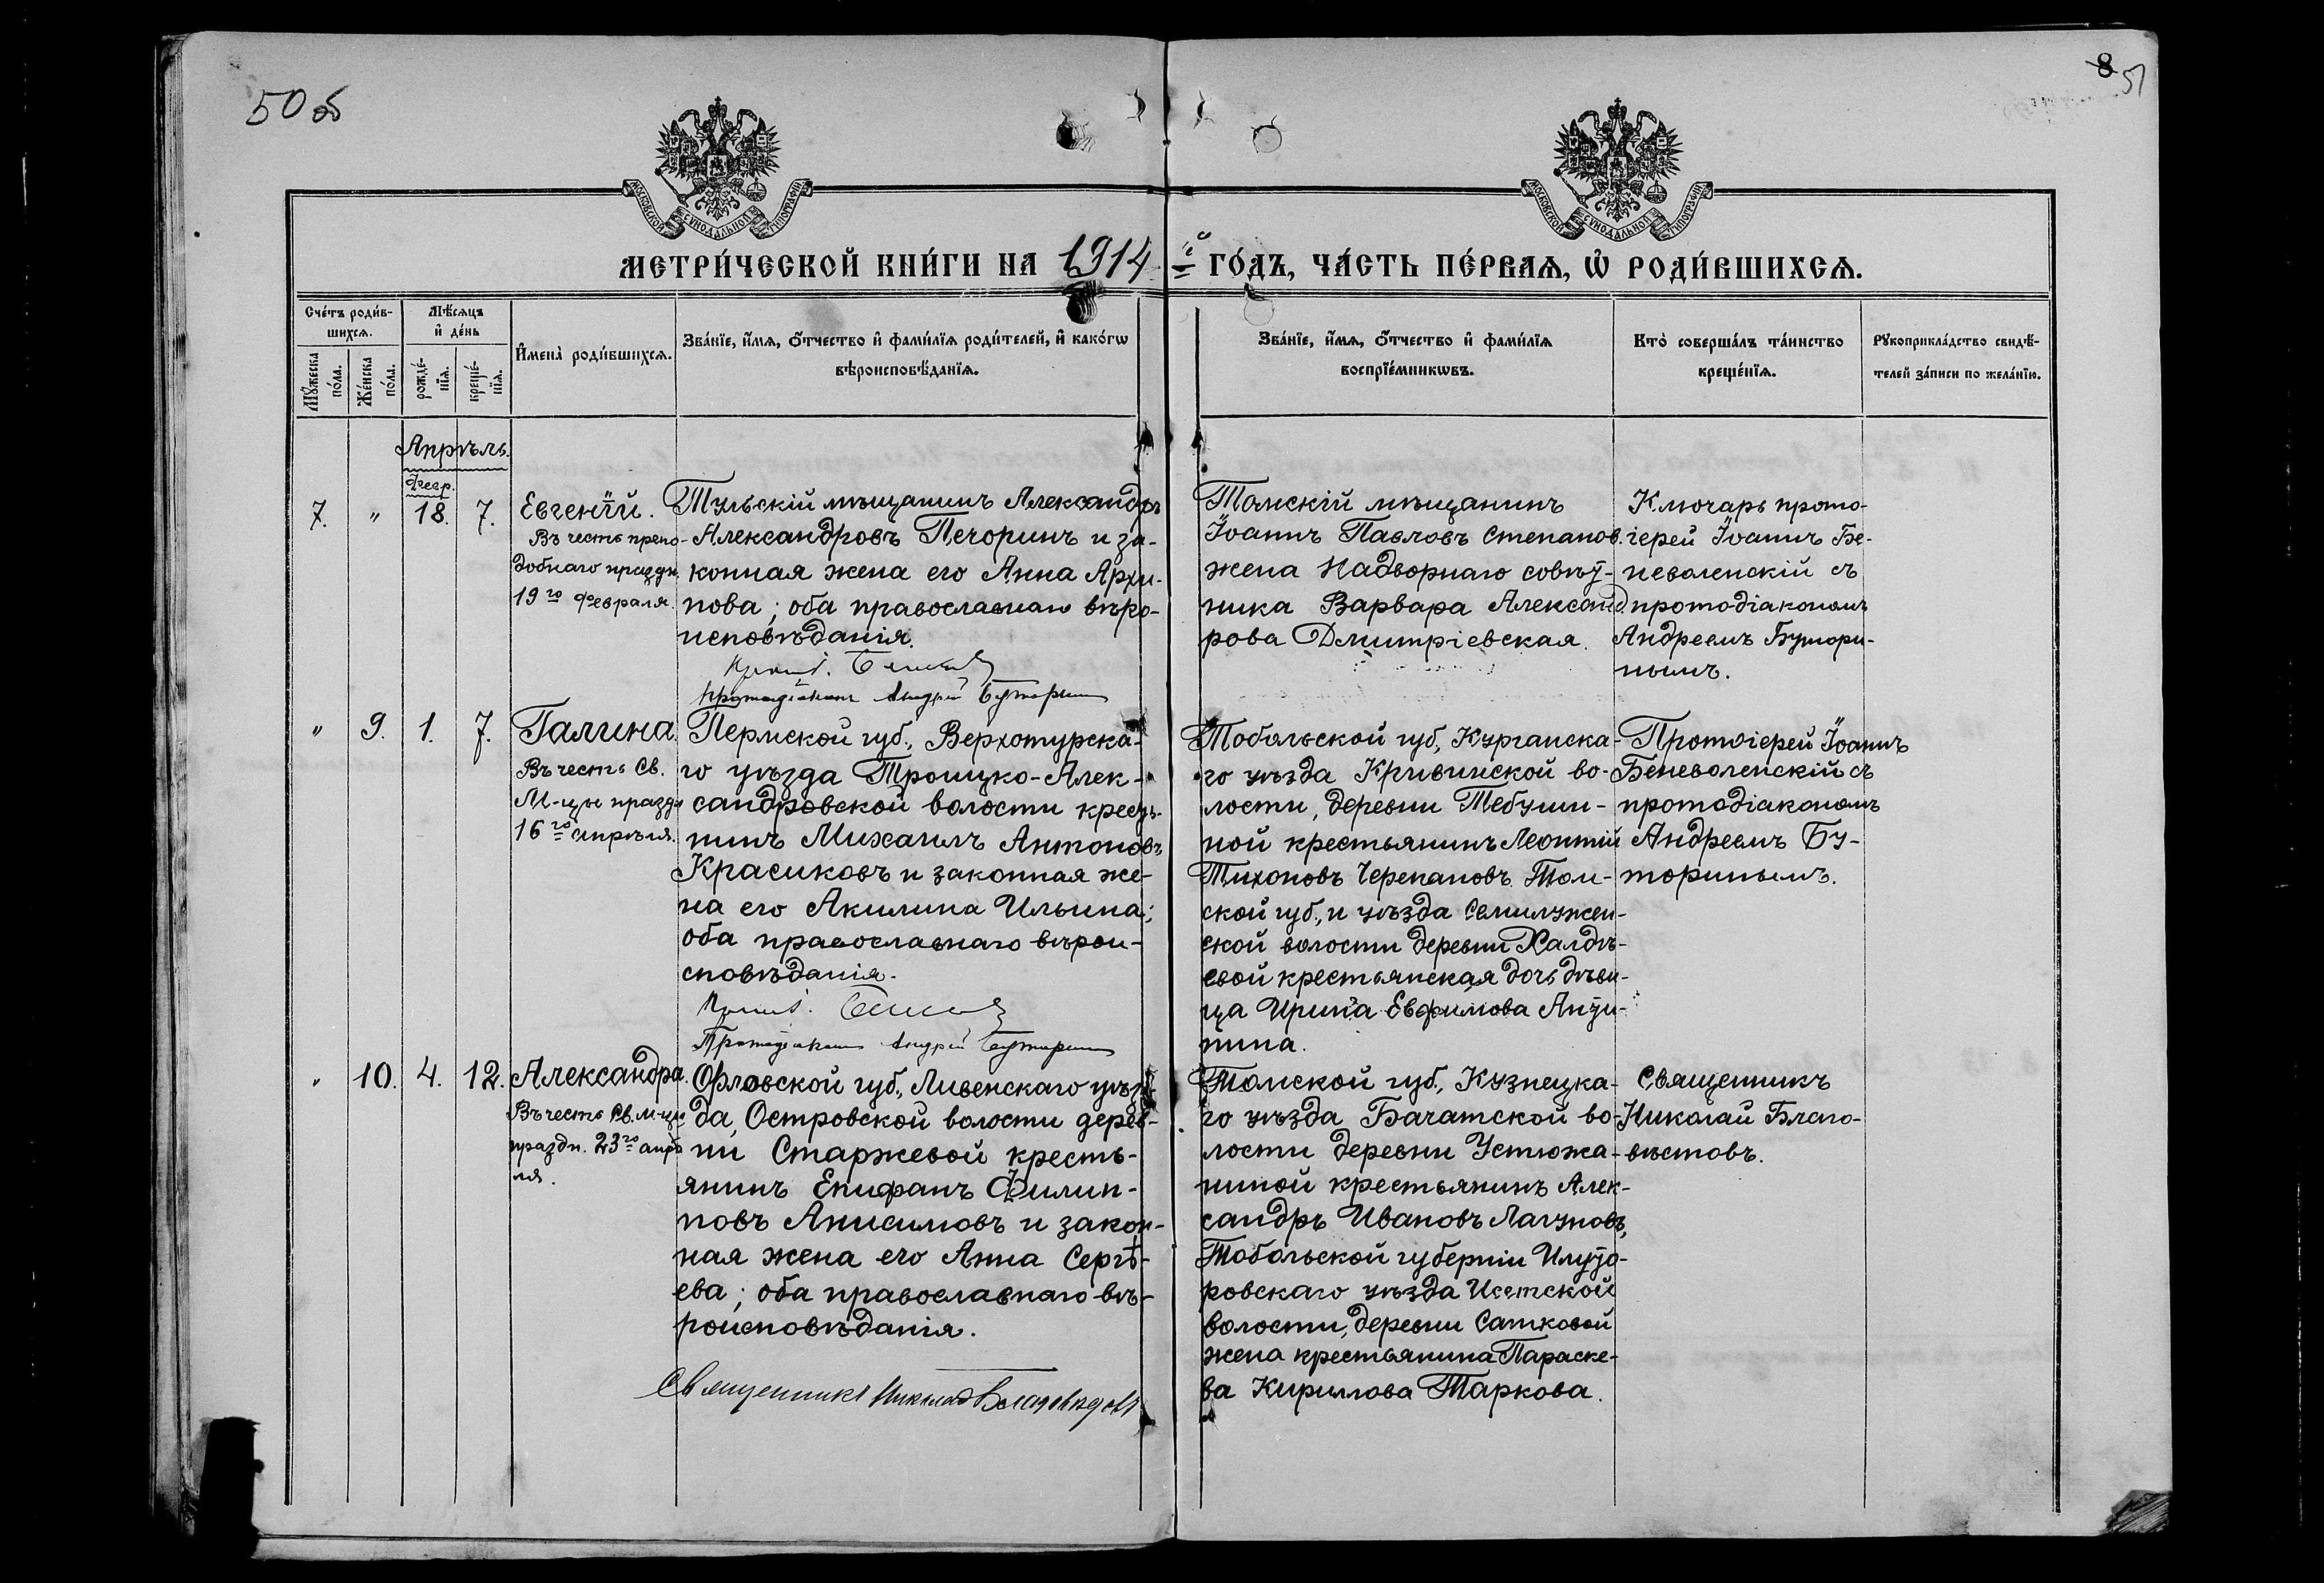 50 об
8 51
МОСКОВСКОЙ СУНОДАЛЬНОЙ ТИПОГРАФІИ
МОСКОВСКОЙ СУНОДАЛЬНОЙ ТИПОГРАФІИ
МЕТРИ́ЧЕСКОЙ КНИ́ГИ НА 1914 й ГО́ДЪ, ЧА́СТЬ ПЕ́РВАѦ, Ѡ҆ РОДИ́ВШИХСѦ.
Сче́тъ роди́в-
шихсѧ.
Мꙋ́жеска
по́ла.
Же́нска
по́ла.
Мѣ́сѧцъ
и҆ де́нь
рожде́-
нїѧ.
креще́-
нїѧ.
И҆мена̀ роди́вшихсѧ.
Зва́нїе, и҆́мѧ, ѻ҆́тчество и҆ фами́лїѧ роди́телей, и҆ како́гѡ
вѣроисповѣ́данїѧ.
Зва́нїе, и҆́мѧ, ѻ҆́тчество и҆ фами́лїѧ
воспрїе́мникѡвъ.
Кто̀ соверша́лъ та́инство
креще́нїѧ.
Рꙋкоприкла́дство свидѣ́-
телей за́писи по жела́нїю.
Апрѣль.
Февр.
7. " 18. 7.
Евгеній.
Въ честь препо-
добнаго праздн.
19го февраля.
Тульскій мѣщанинъ Александръ
Александровъ Печоринъ и за-
конная жена его Анна Архи-
пова; оба православнаго вѣро-
исповѣданія.
Протодіаконъ Андрей Буторинъ
Томскій мѣщанинъ
Іоаннъ Павловъ Степанов.
жена Надворнаго совѣт-
ника Варвара Александ
рова Дмитріевская.
Ключарь прото-
іерей Іоаннъ Бе-
неволенскій съ
протодіакономъ
Андреемъ Бутори-
нымъ.
" 9. 1. 7.
Галина.
Въ честь Св.
М-цы празд.
16го апрѣля.
Пермской губ., Верхотурска-
го уѣзда Троицко-Алек-
сандровской волости кресть-
нинъ Михаилъ Антоновъ
Красиковъ и законная же-
на его Акилина Ильина;
оба православнаго вѣрои-
сповѣданія.
Протодіаконъ Андрей Буторинъ
Тобольской губ., Курганска-
го уѣзда Кривинской во-
лости, деревни Тебуши-
ной крестьянинъ Леонтій
Тихоновъ Черепановъ. Том-
ской губ., и уѣзда Семилужен-
ской волости деревни Халдѣ-
евой крестьянская дочь дѣви-
ца Ирина Евфимова Анти-
пина.
Протоіерей Іоаннъ
Беневоленскій съ
протодіакономъ
Андреемъ Бу-
торинымъ.
" 10. 4. 12.
Александра.
Въ честь Св. м-цы
праздн. 23го апрѣ
ля.
Орловской губ., Ливенскаго уѣз-
да, Островской волости дерев-
ни Старжевой кресть-
янинъ Епифанъ Филип-
повъ Анисимовъ и закон-
ная жена его Анна Сергѣ-
ева; оба православнаго вѣ-
роисповѣданія.
Священникъ Николай Благовѣстовъ
Томской губ., Кузнецка-
го уѣзда Бачатской во-
лости деревни Устюжа-
ниной крестьянинъ Алек-
сандръ Ивановъ Лагуновъ,
Тобольской губерніи Ялуто-
ровскаго уѣзда Исетской
волости, деревни Сатковой
жена крестьянина Параске-
ва Кириллова Таркова.
Священникъ
Николай Благо-
вѣстовъ.